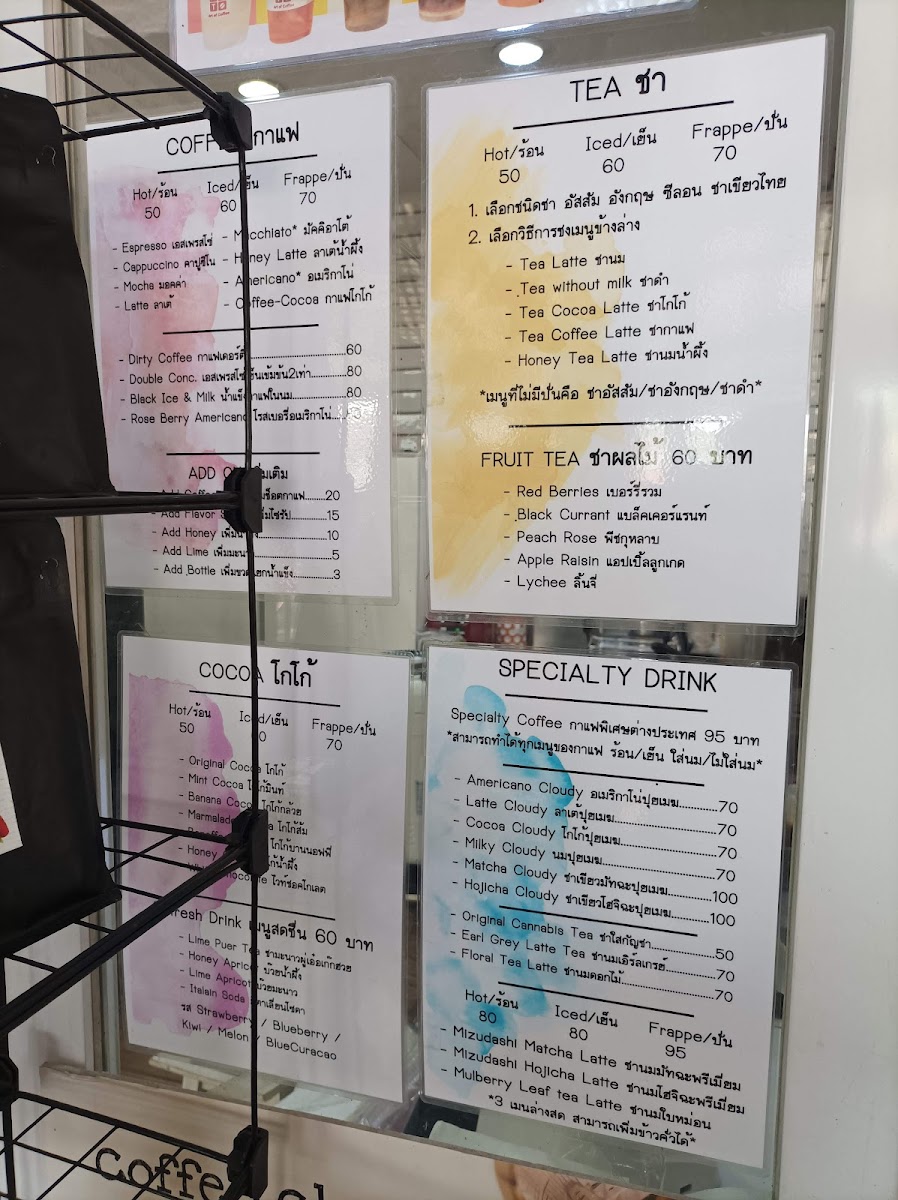 Art of Coffee
Art of Coffee
กาแฟ
Hot/ร้อน Iced/เย็น Frappe/ปั่น
50 60 70
- Espresso เอสเพรสโซ่ - Macchiato* มัคคิอาโต้
- Cappuccino คาปูชิโน - Honey Latte ลาเต้น้ำผึ้ง
- Mocha มอคค่า - Americano* อเมริกาโน่
- Latte ลาเต้ - Coffee-Cocoa กาแฟโกโก้
- Dirty Coffee กาแฟเดอร์ตี้ 60
- Double Conc. เอสเพรสโซ่เข้มข้น2เท่า 80
- Black Ice & Milk น้ำแข็งกาแฟในนม 80
- Rose Berry Americano โรสเบอรี่อเมริกาโน่
ADD
- Add 20
- Add Flavor 15
- Add Honey 10
- Add Lime เพิ่มมะนาว 5
- Add Bottle 3
TEA ชา
Hot/ร้อน Iced/เย็น Frappe/ปั่น
50 60 70
1. เลือกชนิดชา อัสสัม อังกฤษ ซีลอน ชาเขียวไทย
2. เลือกวิธีการชงเมนูข้างล่าง
- Tea Latte ชานม
- Tea without milk ชาดำ
- Tea Cocoa Latte ชาโกโก้
- Tea Coffee Latte ชากาแฟ
- Honey Tea Latte ชานมน้ำผึ้ง
*เมนูที่ไม่มีปั่นคือ ชาอัสสัม/ชาอังกฤษ/ชาดำ*
FRUIT TEA ชาผลไม้ 60 บาท
- Red Berries เบอร์รี่รวม
- Black Currant แบล็คเคอร์แรนท์
- Peach Rose พีชกุหลาบ
- Apple Raisin แอปเปิ้ลลูกเกด
- Lychee ลิ้นจี่
COCOA โกโก้
Hot/ร้อน Iced/เย็น Frappe/ปั่น
50 70
- Original Cocoa โกโก้
- Mint Cocoa โกโก้มินท์
- Banana Cocoa โกโก้กล้วย
- Marmalade โกโก้ส้ม
โกโก้บานนอฟฟี่
- Honey โกโก้น้ำผึ้ง
ไวท์ชอคโกเลต
Fresh Drink เมนูสดชื่น 60 บาท
- Lime Puer Tea ชามะนาวผู่เอ๋อเก๊กฮวย
- Honey Apricot บ๊วยน้ำผึ้ง
- Lime Apricot บ๊วยมะนาว
- Italain Soda อิตาเลี่ยนโซดา
รส Strawberry / Blueberry /
Kiwi / Melon / BlueCuracao
SPECIALTY DRINK
Specialty Coffee กาแฟพิเศษต่างประเทศ 95 บาท
*สามารถทำได้ทุกเมนูของกาแฟ ร้อน/เย็น ใส่นม/ไม่ใส่นม*
- Americano Cloudy อเมริกาโน่ปุยเมฆ 70
- Latte Cloudy ลาเต้ปุยเมฆ 70
- Cocoa Cloudy โกโก้ปุยเมฆ 70
- Milky Cloudy นมปุยเมฆ 70
- Matcha Cloudy ชาเขียวมัทฉะปุยเมฆ 100
- Hojicha Cloudy ชาเขียวโฮจิฉะปุยเมฆ 100
- Original Cannabis Tea ชาใส่กัญชา 50
- Earl Grey Latte Tea ชานมเอิร์ลเกรย์ 70
- Floral Tea Latte ชานมดอกไม้ 70
Hot/ร้อน Iced/เย็น Frappe/ปั่น
80 80 95
- Mizudashi Matcha Latte ชานมมัทฉะพรีเมี่ยม
- Mizudashi Hojicha Latte ชานมโฮจิฉะพรีเมี่ยม
- Mulberry Leaf tea Latte ชานมใบหม่อน
*3 เมนูล่างสุด สามารถเพิ่มข้าวคั่วได้*
coffee